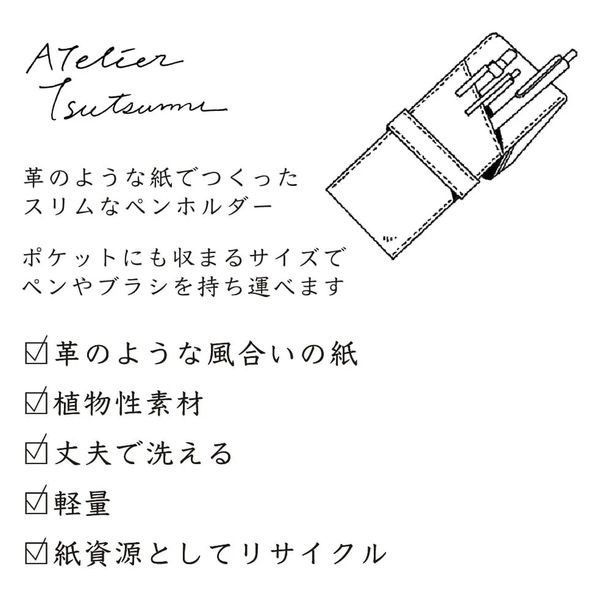 Atelier
Tsutsumu
革のような紙でつくった
スリムなペンホルダー
ポケットにも収まるサイズで
ペンやブラシを持ち運べます
☑革のような風合いの紙
☑植物性素材
☑丈夫で洗える
☑軽量
☑紙資源としてリサイクル